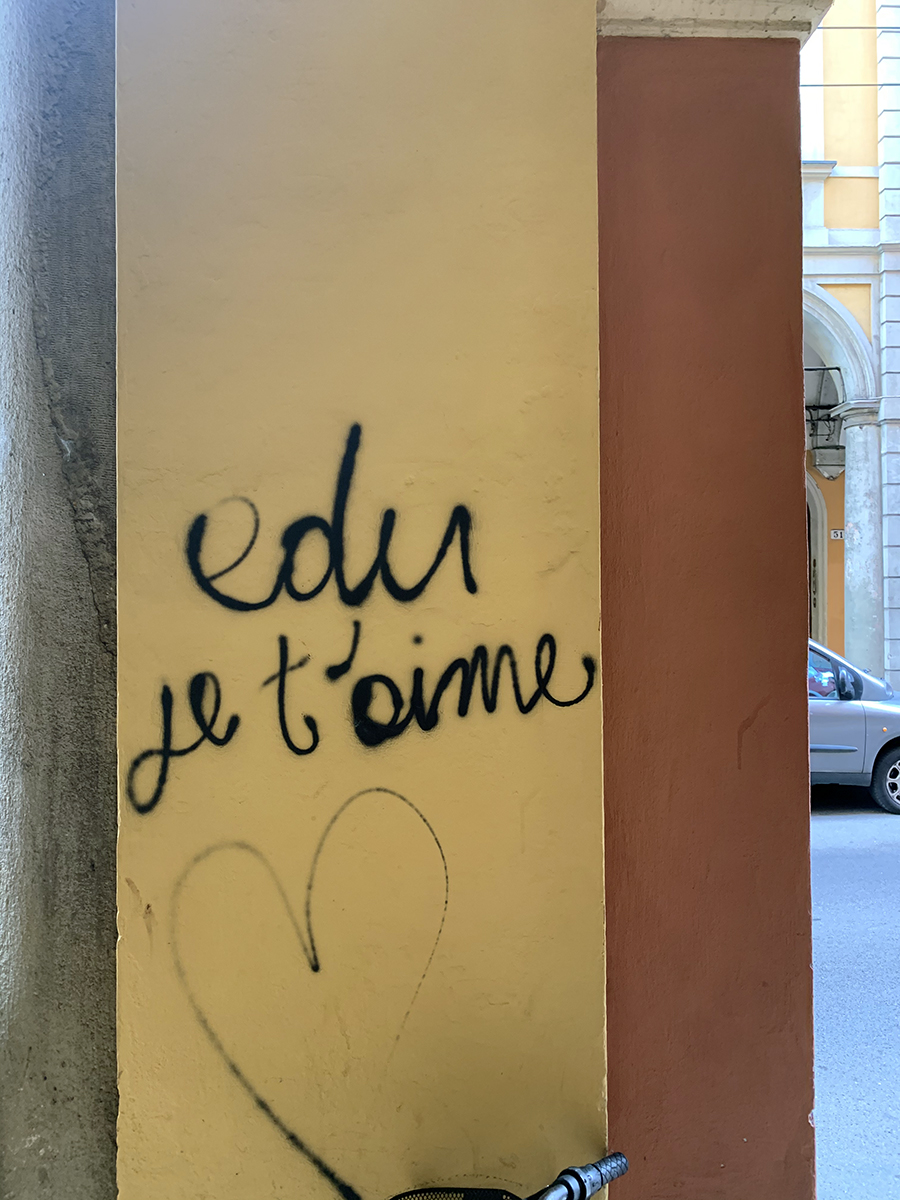 edu
je t'aime
51